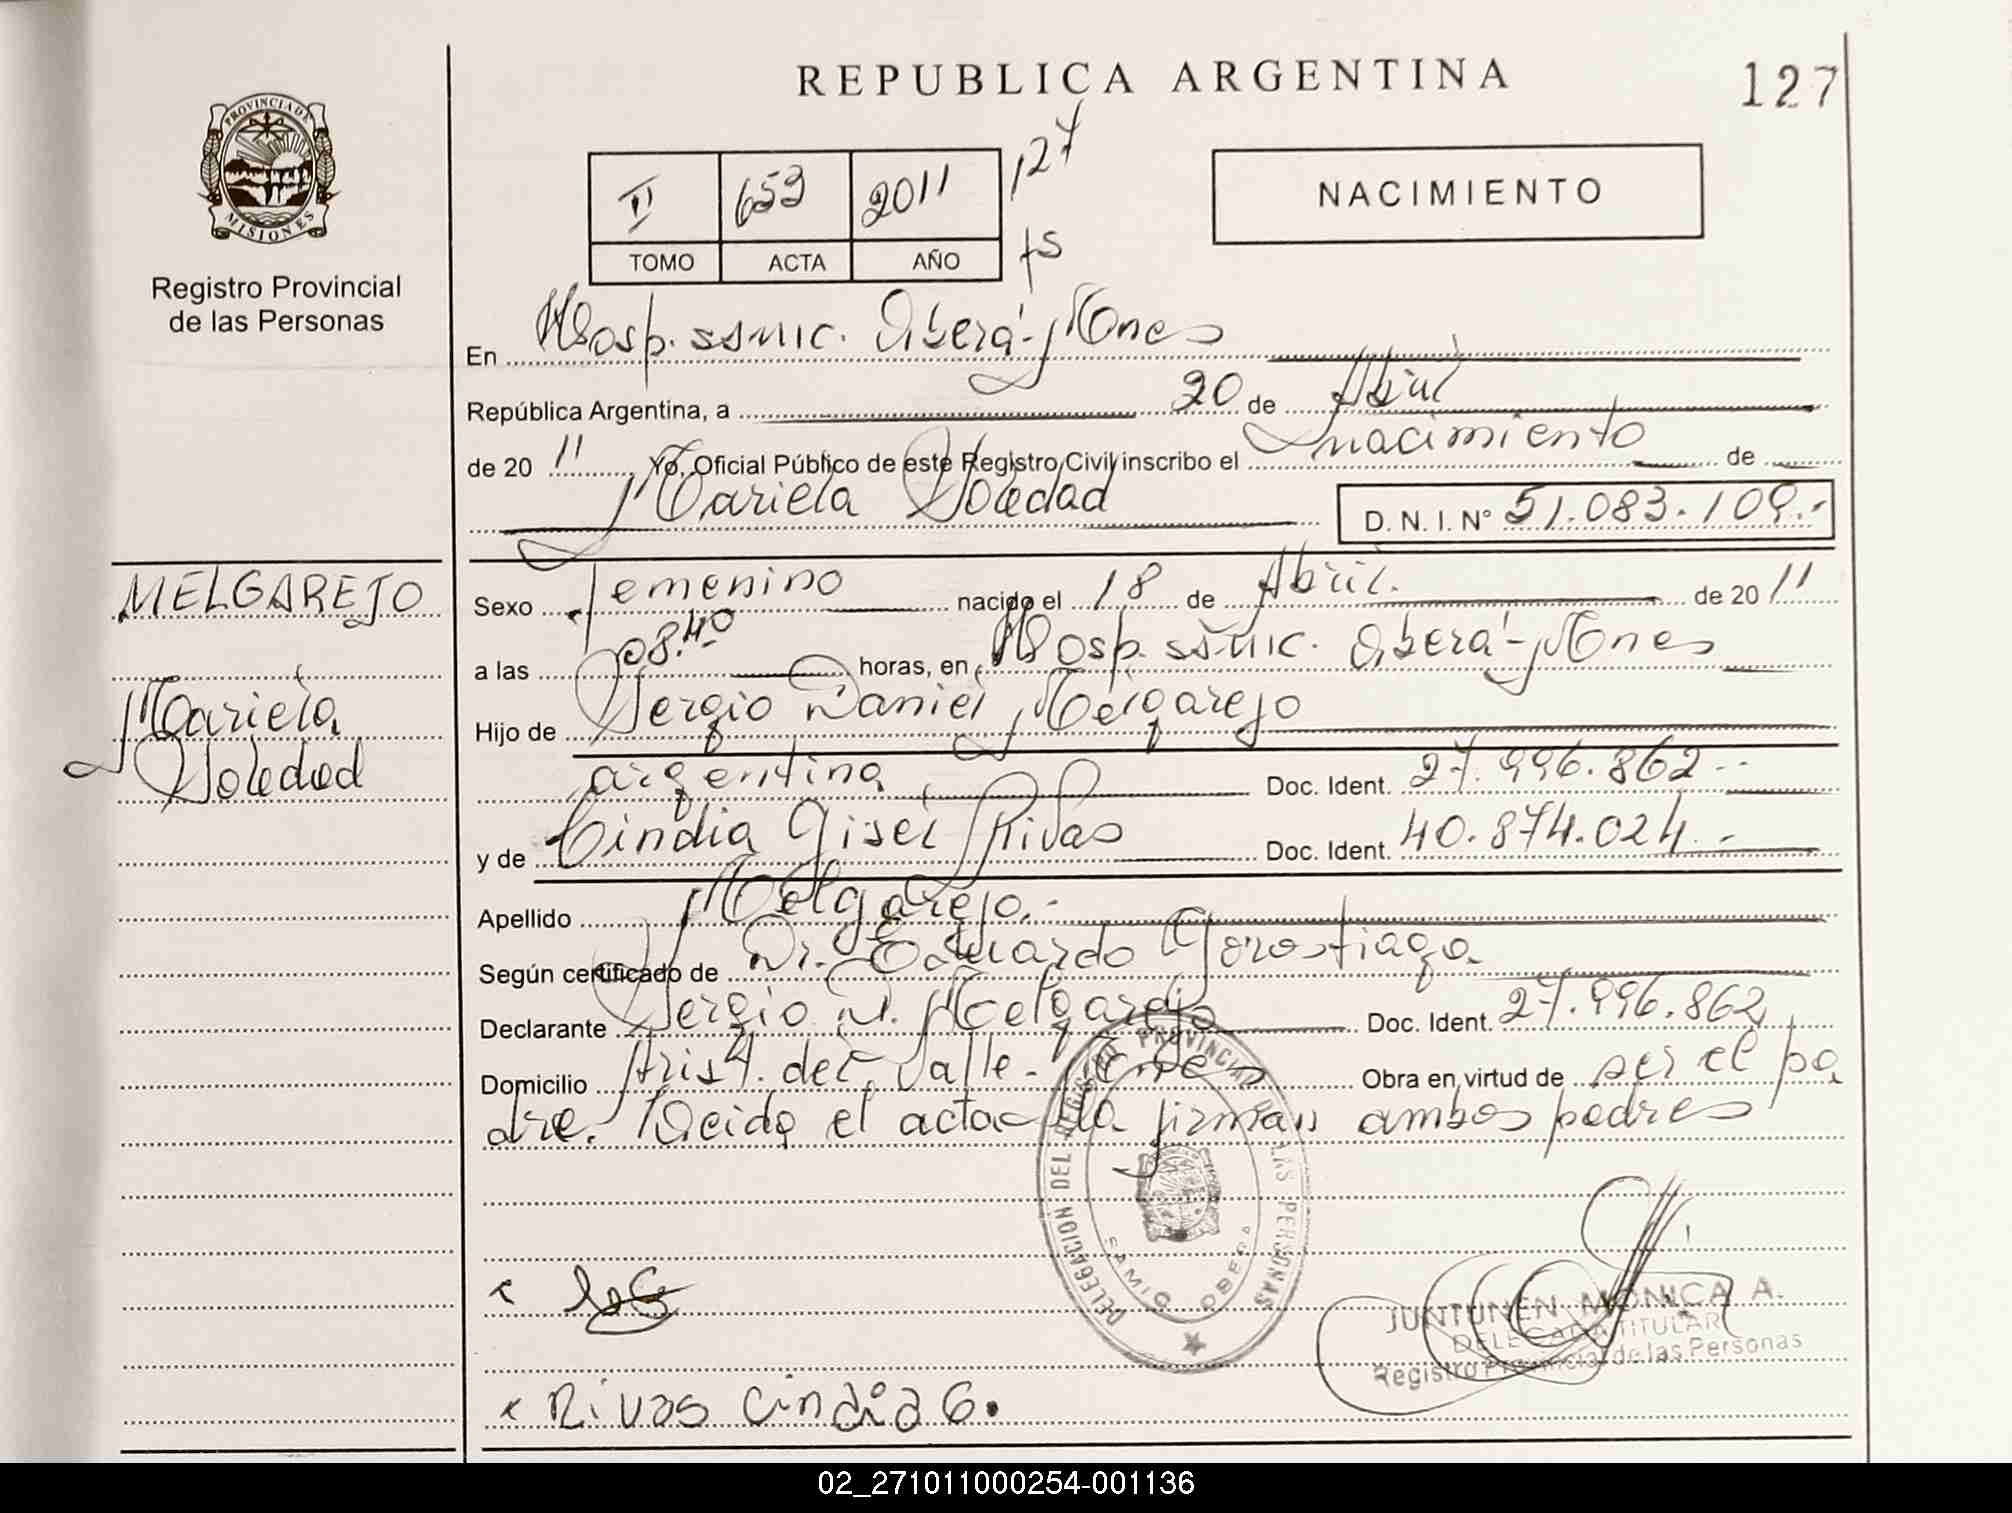 REPUBLICA ARGENTINA
127
PROVINCIA DE
MISIONES
Registro Provincial
de las Personas
II 653 2011 127
TOMO ACTA AÑO fs
NACIMIENTO
En Hosp. SSMIC. Oberá-Mnes
República Argentina, a 20 de Abril
de 20 11 Yo, Oficial Público de este Registro Civil inscribo el nacimiento de
Mariela Soledad D. N. I. N° 51.083.109.-
MELGAREJO
Mariela
Soledad
Sexo femenino nacido el 18 de Abril. de 20 11
a las 08.40 horas, en Hosp. SSMIC. Oberá-Mnes
Hijo de Sergio Daniel Melgarejo
argentina Doc. Ident. 27.996.862.-
y de Cindia Gisel Rivas Doc. Ident. 40.874.024.-
Apellido Melgarejo.-
Según certificado de Dr. Eduardo Gorostiaga
Declarante Sergio D. Melgarejo Doc. Ident. 27.996.862
Domicilio Arist. del Valle-Mnes Obra en virtud de ser el pa
dre. Leida el acta la firman ambos padres
DELEGACION DEL REGISTRO PROVINCIAL DE LAS PERSONAS
OBERA
JUNTUNEN MONICA A.
DELEGADA TITULAR
Registro Provincial de las Personas
x Rivas Cindia G.
02_271011000254-001136